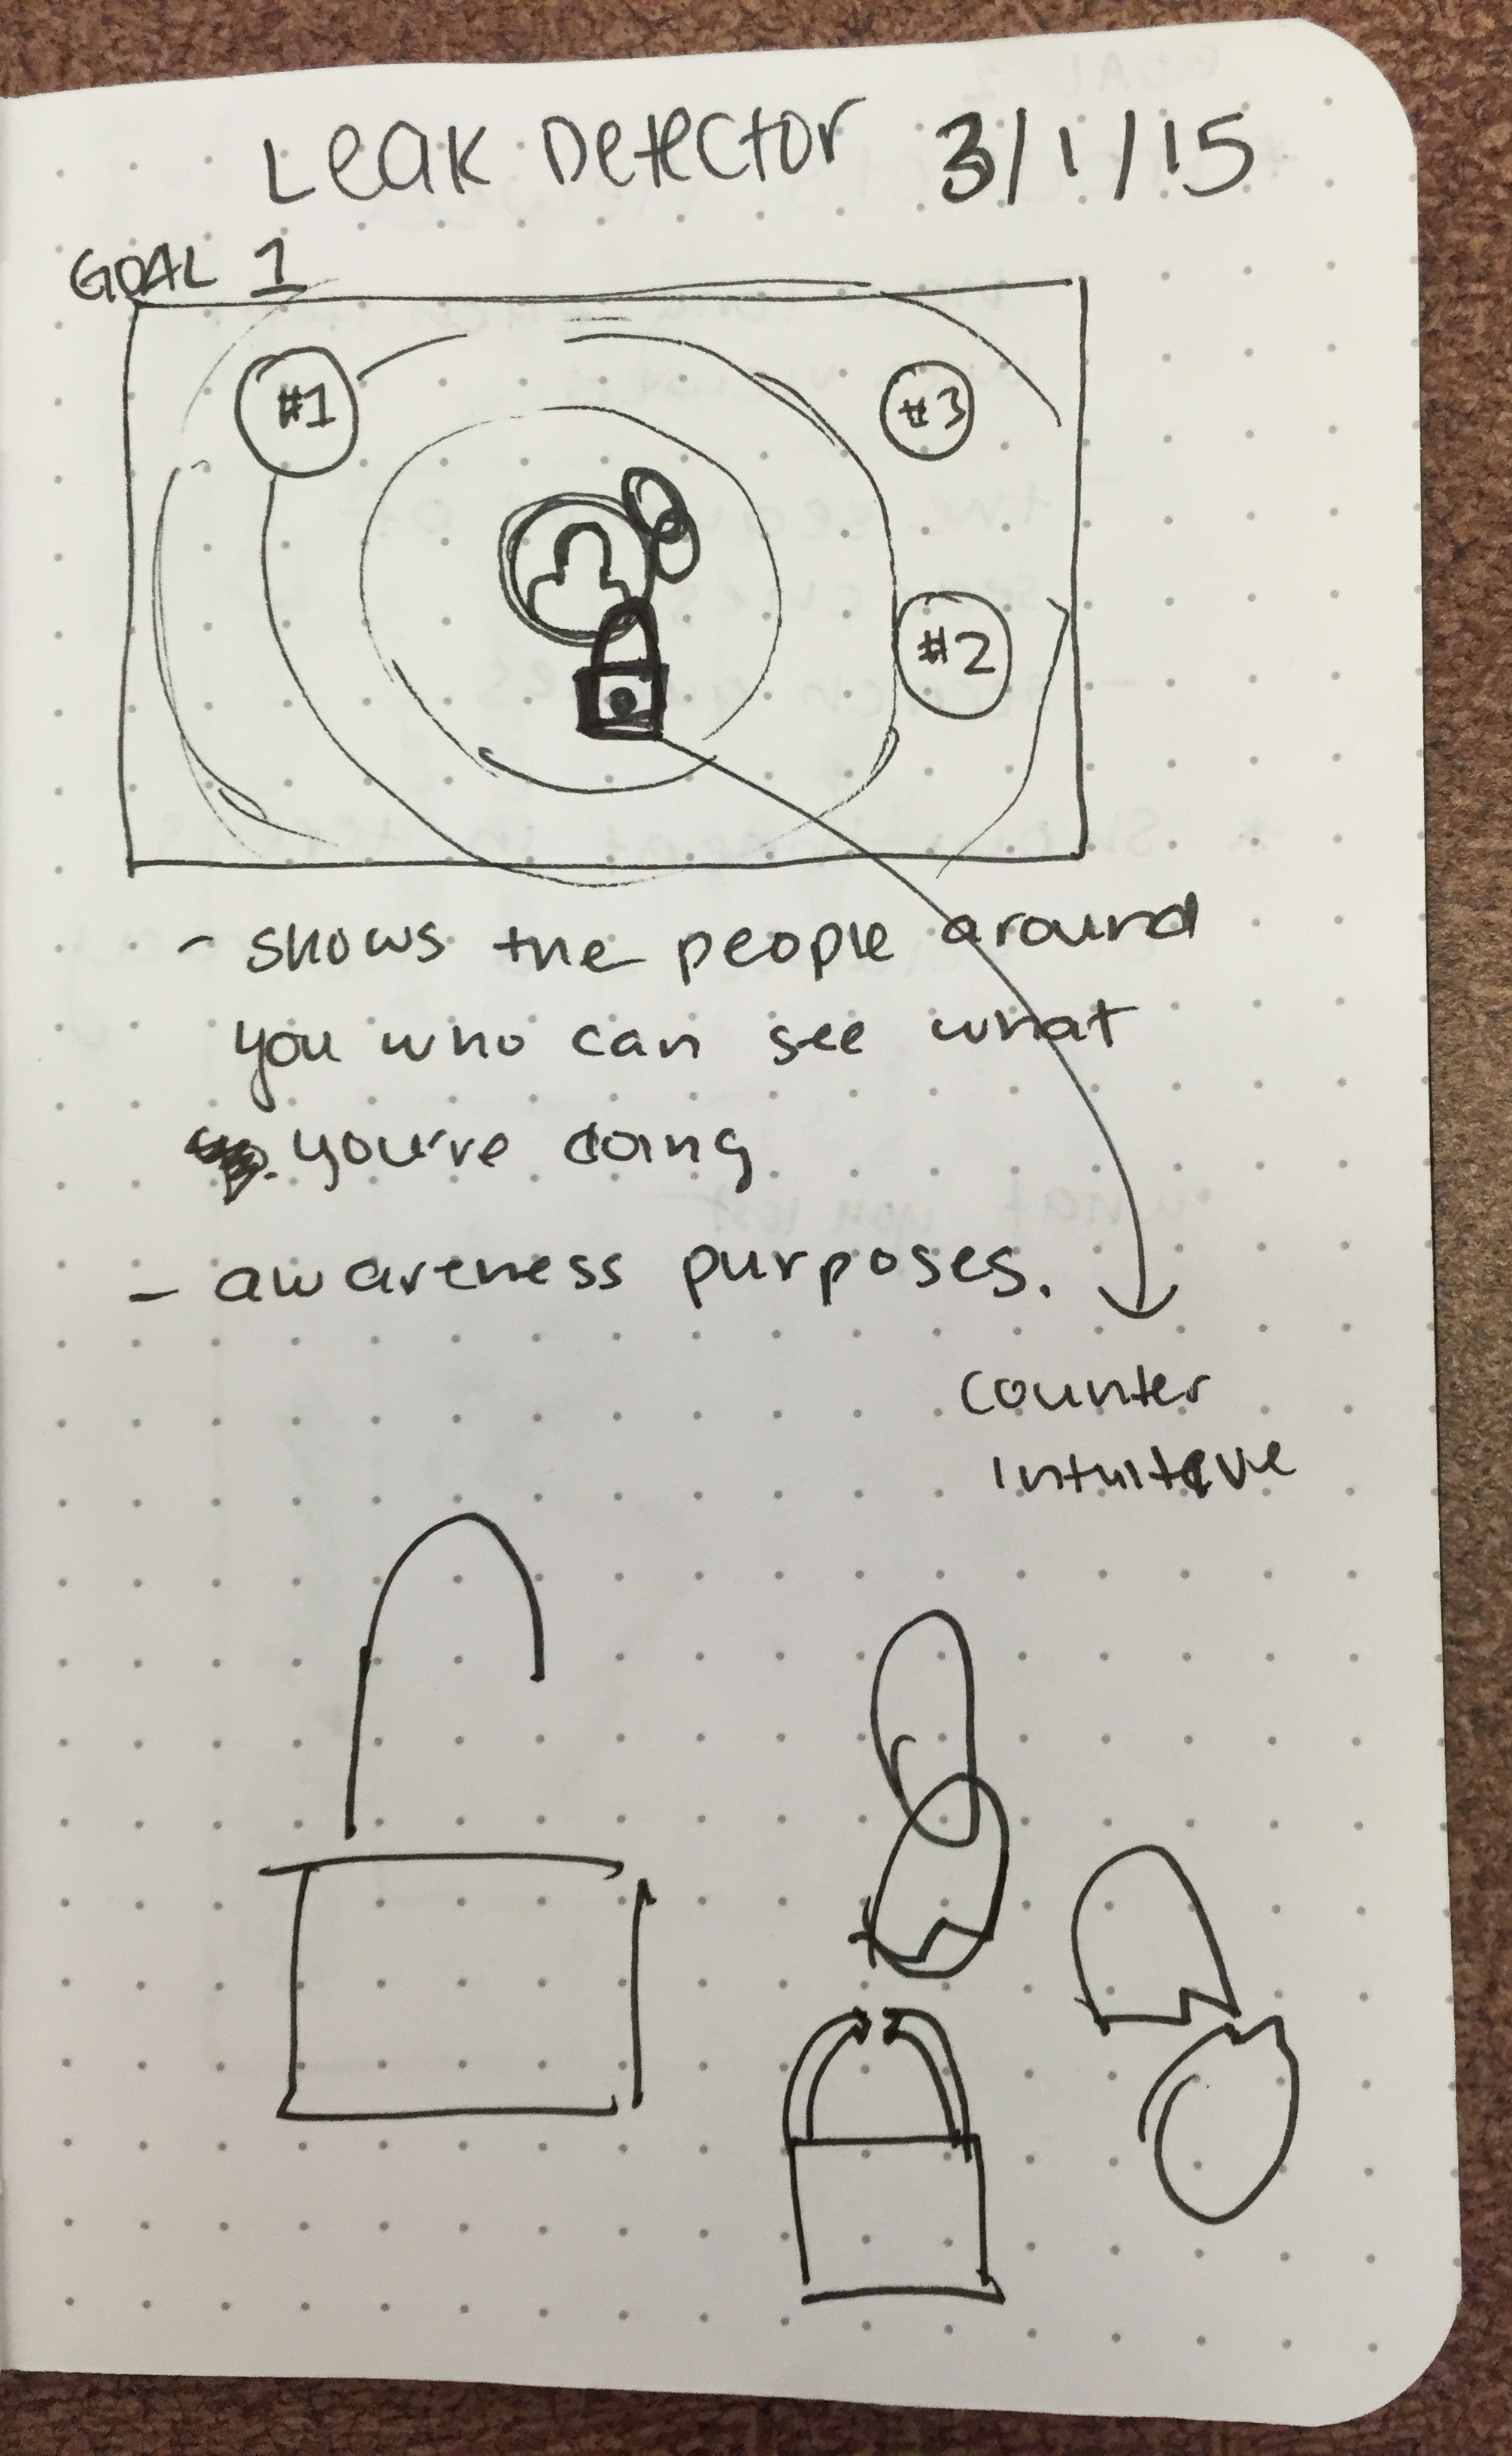 Leak Detector 3/1/15
GOAL 1
#1
#3
#2
- shows the people around
you who can see what
you're doing
- awareness purposes.
counter
intuitive